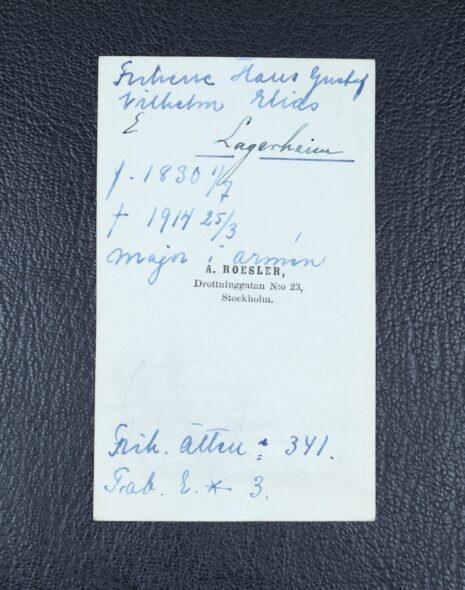 Friherre Hans Gustaf
Vilhelm Elias
E
Lagerheim
f. 1830 1/7
† 1914 25/3
major i armén
A. ROESLER,
Drottninggatan N:o 23,
Stockholm.
Frih. ätten: 341.
Tab. E. * 3.